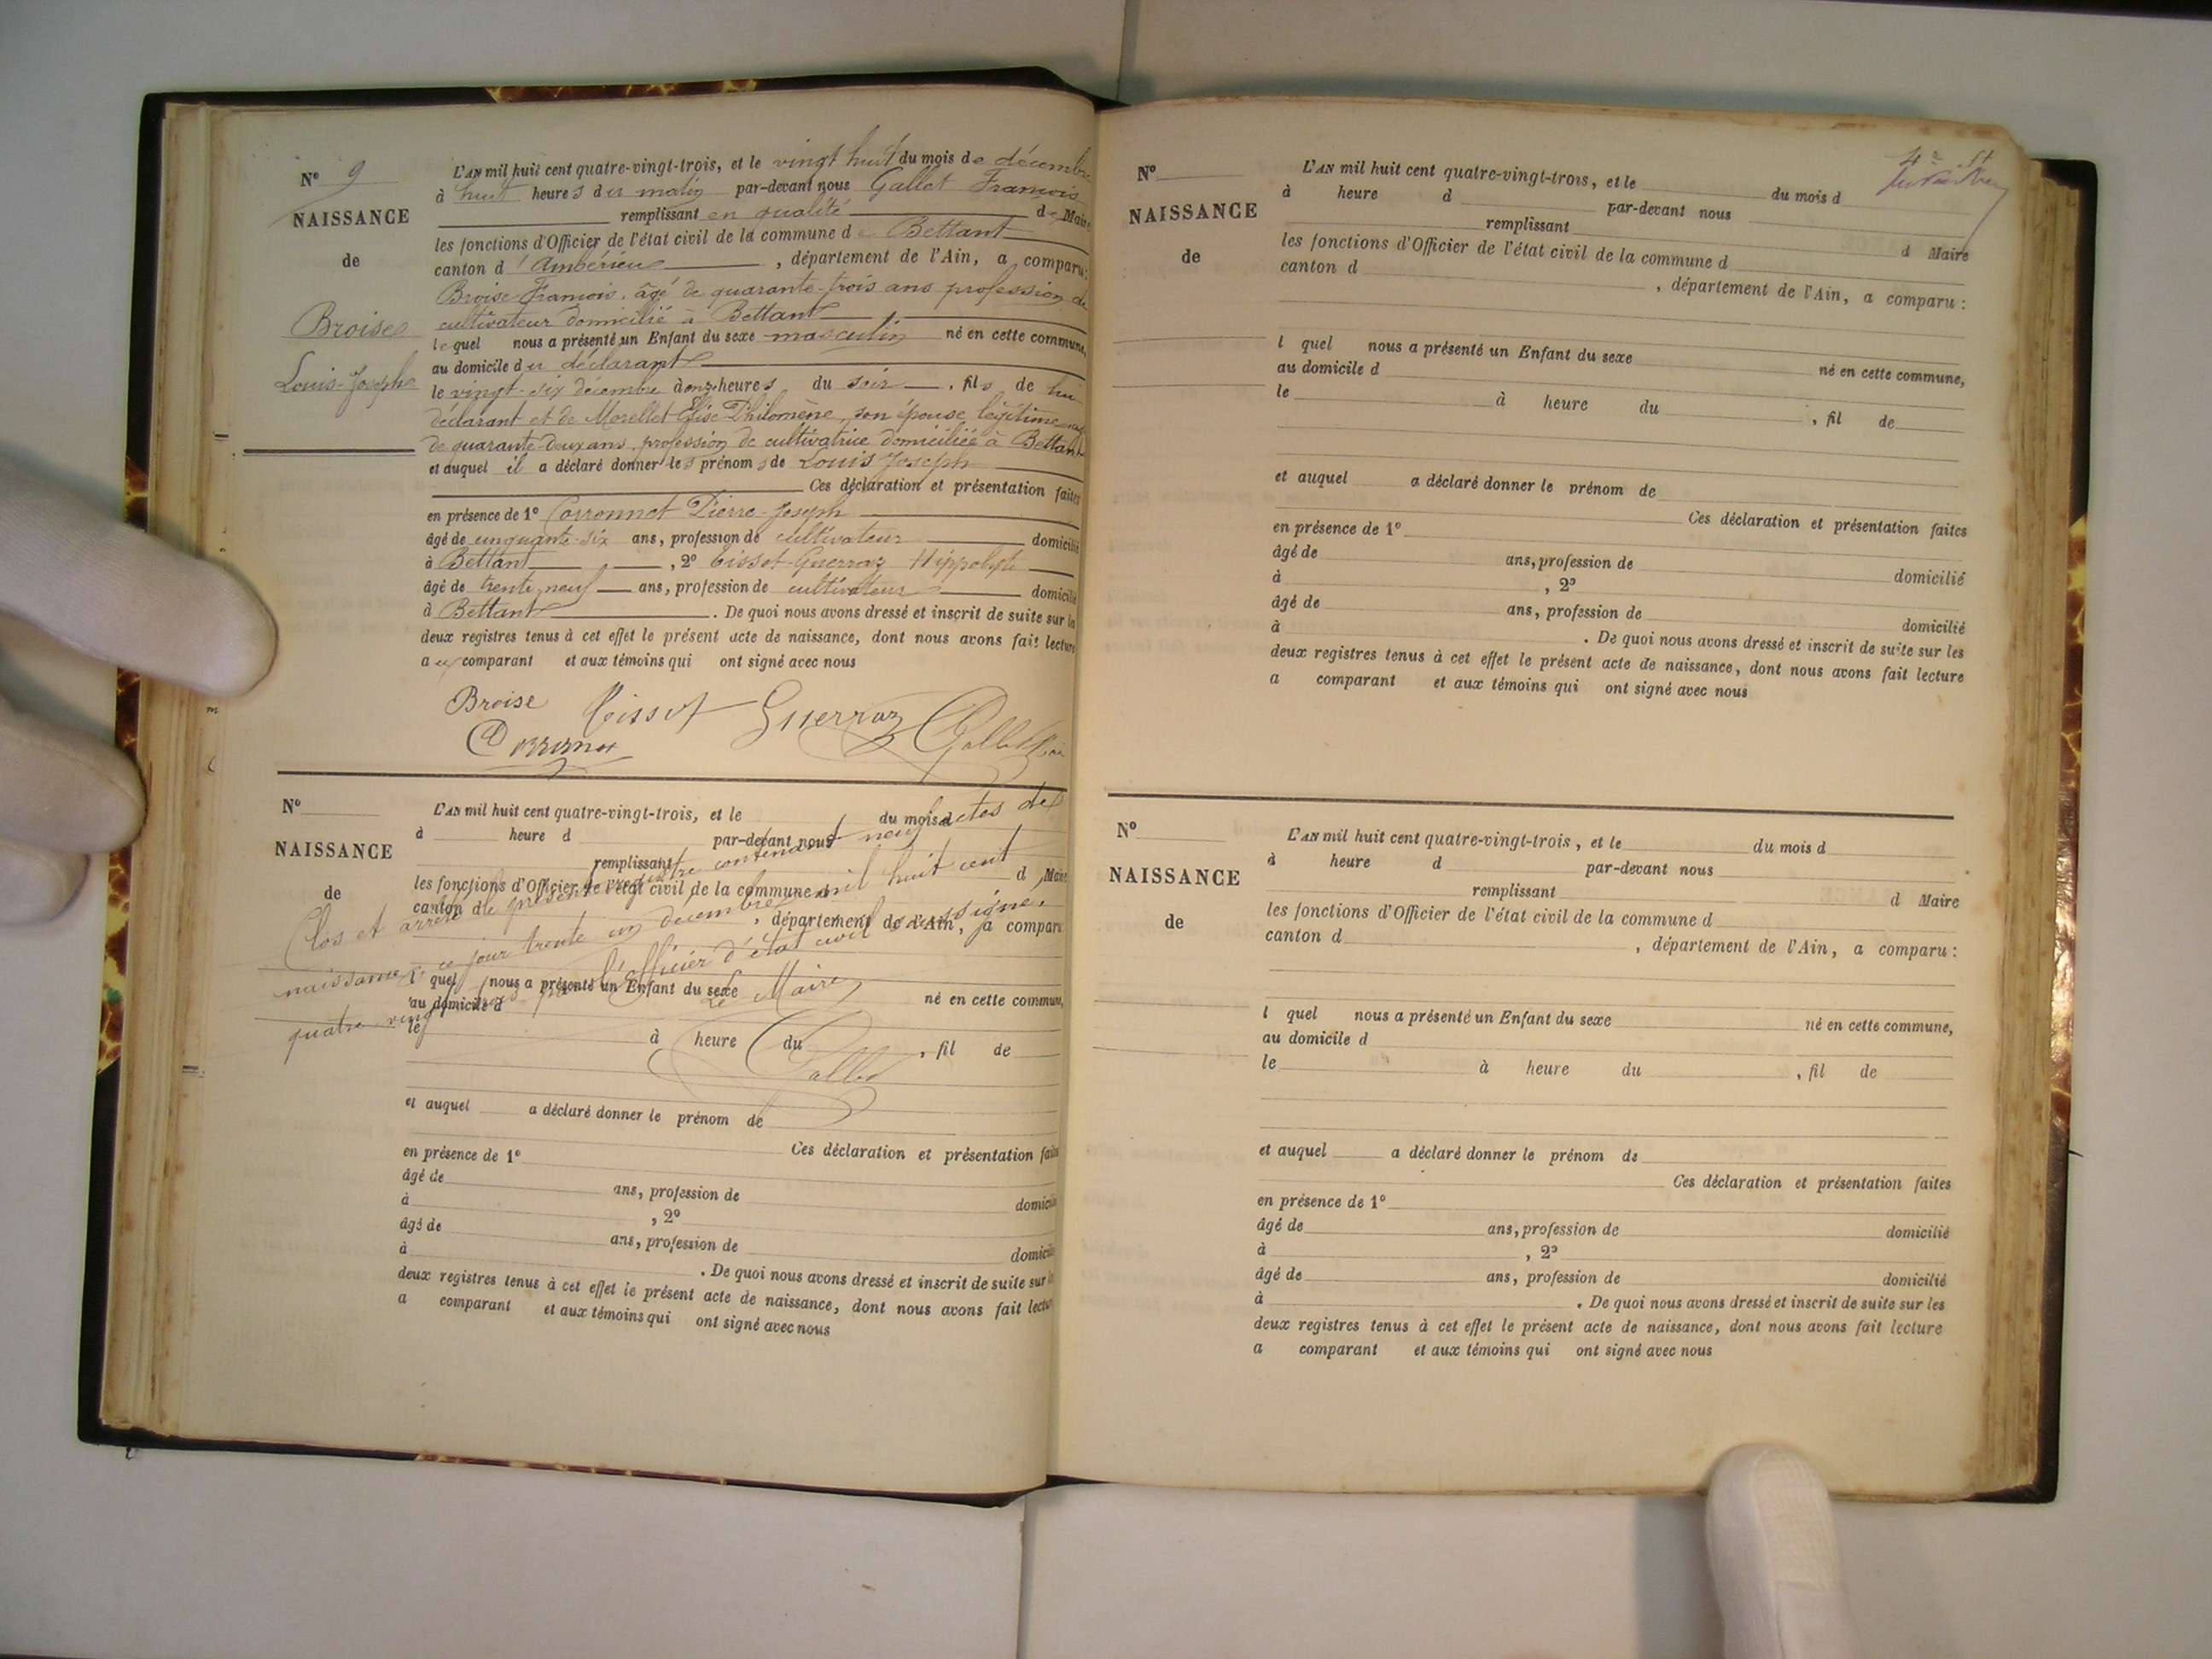 N° 9
NAISSANCE
de
Broise
Louis-Joseph
L'AN mil huit cent quatre-vingt-trois, et le vingt huit du mois de décembre
à huit heures du matin par-devant nous Gallet François
remplissant en qualité de Maire
les fonctions d'Officier de l'état civil de la commune de Bettant
canton d'Ambérieu, département de l'Ain, a comparu:
Broise François, âgé de quarante-trois ans profession de
cultivateur domicilié à Bettant
lequel nous a présenté un Enfant du sexe masculin né en cette commune,
au domicile du déclarant
le vingt-six décembre à onze heures du soir, fils de lui
déclarant et de Morellet Élise Philomène, son épouse légitime
de quarante-deux ans, profession de cultivatrice domiciliée à Bettant
et auquel il a déclaré donner les prénoms de Louis Joseph
Ces déclaration et présentation faites
en présence de 1° Corronnet Pierre-Joseph
âgé de cinquante-six ans, profession de cultivateur domicilié
à Bettant, 2° Tissot-Guerraz Hippolyte
âgé de trente-neuf ans, profession de cultivateur domicilié
à Bettant. De quoi nous avons dressé et inscrit de suite sur les
deux registres tenus à cet effet le présent acte de naissance, dont nous avons fait lecture
au comparant et aux témoins qui ont signé avec nous
Broise Tissot Guerraz Gallet
N°
NAISSANCE
de
L'AN mil huit cent quatre-vingt-trois, et le du mois d
à heure d par-devant nous
remplissant d Maire
les fonctions d'Officier de l'état civil de la commune d
canton d , département de l'Ain, a comparu
l quel nous a présenté un Enfant du sexe né en cette commune,
au domicile d
le à heure du , fil de
Clos et arrêté le présent registre contenant neuf actes de
naissance ce jour trente un décembre mil huit cent
quatre-vingt trois par l'officier d'état civil soussigné.
Le Maire
Gallet
et auquel a déclaré donner le prénom de
Ces déclaration et présentation faites
en présence de 1°
âgé de ans, profession de domicilié
à , 2°
âgé de ans, profession de domicilié
à . De quoi nous avons dressé et inscrit de suite sur
deux registres tenus à cet effet le présent acte de naissance, dont nous avons fait lecture
a comparant et aux témoins qui ont signé avec nous
N°
NAISSANCE
de
L'AN mil huit cent quatre-vingt-trois, et le du mois d
à heure d par-devant nous
remplissant d Maire
les fonctions d'Officier de l'état civil de la commune d
canton d , département de l'Ain, a comparu :
l quel nous a présenté un Enfant du sexe né en cette commune,
au domicile d
le à heure du , fil de
et auquel a déclaré donner le prénom de
Ces déclaration et présentation faites
en présence de 1°
âgé de ans, profession de domicilié
à , 2°
âgé de ans, profession de domicilié
à . De quoi nous avons dressé et inscrit de suite sur les
deux registres tenus à cet effet le présent acte de naissance, dont nous avons fait lecture
a comparant et aux témoins qui ont signé avec nous
N°
NAISSANCE
de
L'AN mil huit cent quatre-vingt-trois, et le du mois d
à heure d par-devant nous
remplissant d Maire
les fonctions d'Officier de l'état civil de la commune d
canton d , département de l'Ain, a comparu :
l quel nous a présenté un Enfant du sexe né en cette commune,
au domicile d
le à heure du , fil de
et auquel a déclaré donner le prénom de
Ces déclaration et présentation faites
en présence de 1°
âgé de ans, profession de domicilié
à , 2°
âgé de ans, profession de domicilié
à . De quoi nous avons dressé et inscrit de suite sur les
deux registres tenus à cet effet le présent acte de naissance, dont nous avons fait lecture
a comparant et aux témoins qui ont signé avec nous